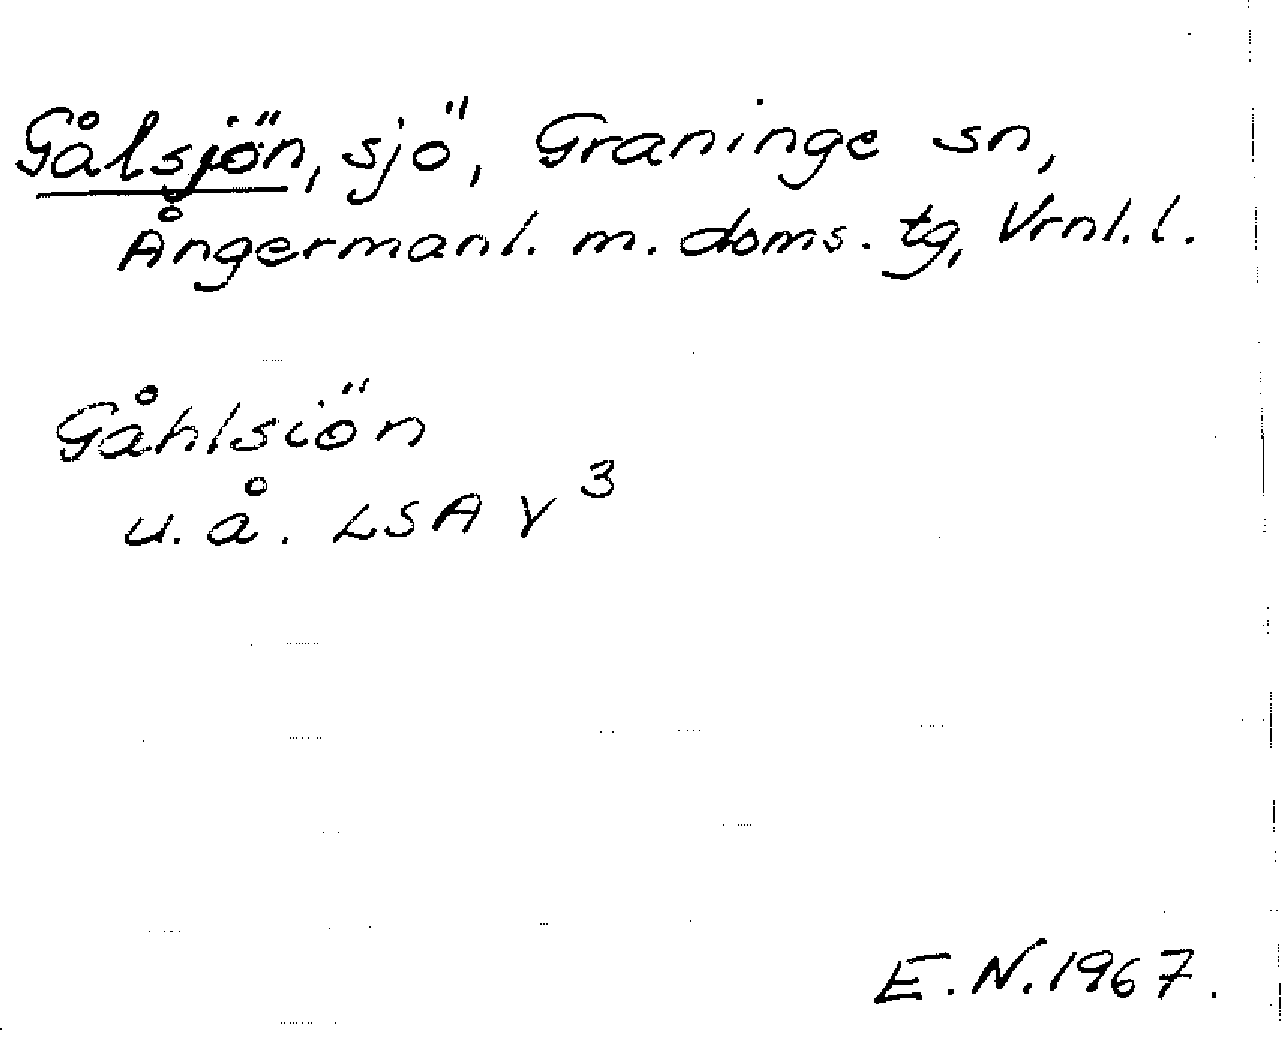 Gålsjön, sjö, Graninge sn,
Ångermanl. m. doms. tg, Vrnl. l.
Gåhlsiön
u. å. LSA Y 3
E. N. 1967.